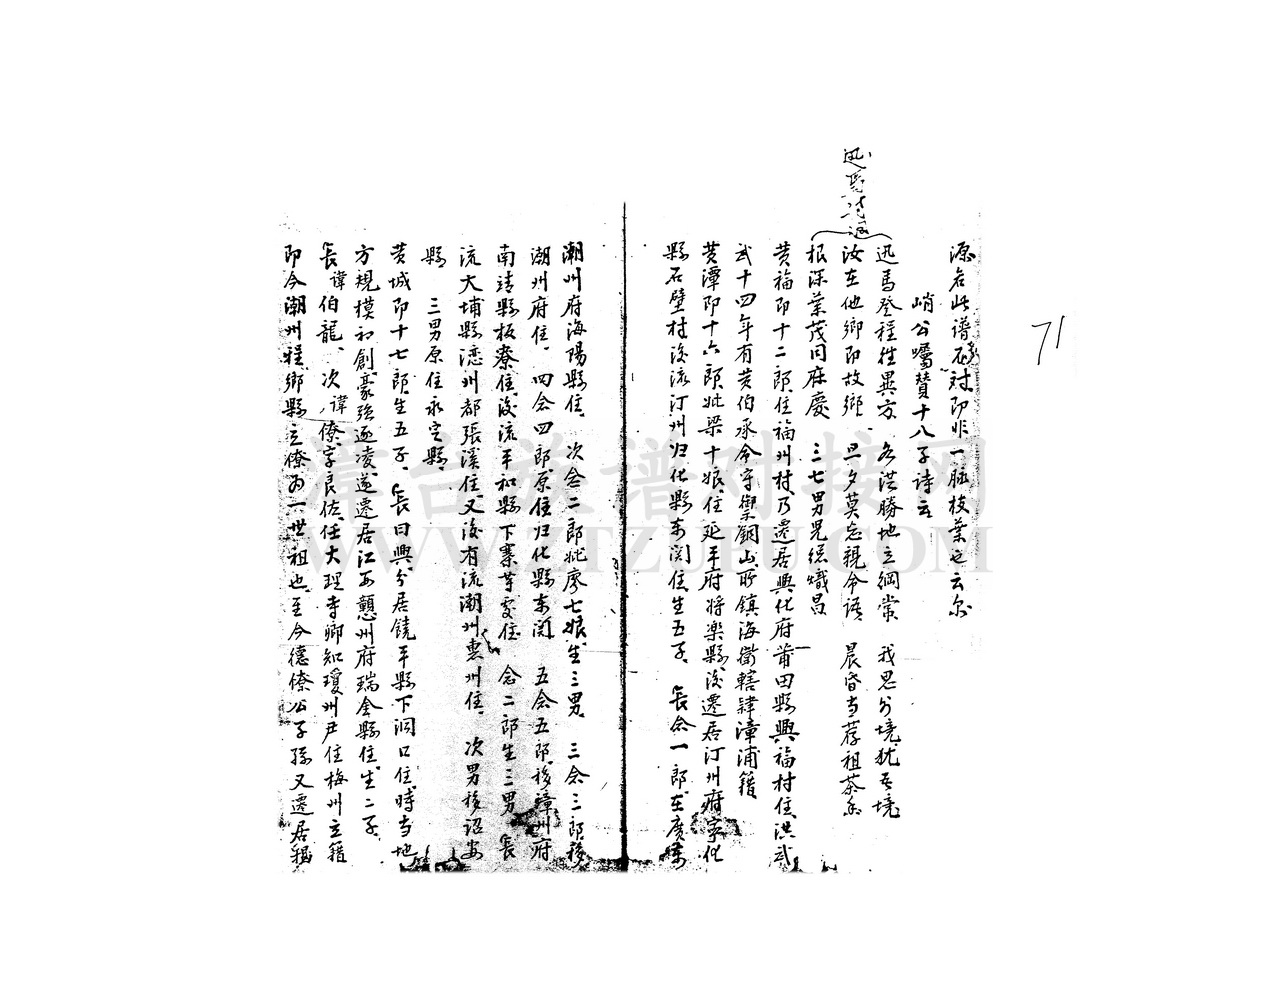 71
源右此譜磡對即非一脉枝葉也云尔
峭公囑贊十八子詩云
迅馬登程徃異方　各洪勝地立綱常　我思外境犹吾境
汝在他鄉即故鄉　旦夕莫忘親命語　晨昏当荐祖茶香
根深葉茂同庥慶　三七男児總熾昌
黄福即十二郎住福州村乃遷居興化府莆田縣興福村住洪武
武十四年有黄伯承令守禦銅山所鎮海衛轄肆漳浦籍
黄潭即十六郎妣梁十娘住延平府将楽縣後遷居汀州府寧化
縣石壁村後流汀州归化縣东関住生五子長念一郎在廣東
潮州府海陽縣住　次念二郎妣廖七娘生三男　三念三郎移
潮州府住　四念四郎原住归化縣东関　五念五郎移漳州府
南靖縣板寮住後流平和縣下寨等處住　念二郎生三男　長
流大埔縣漶州都張溪住又後有流潮州惠州住　次男移詔安
縣　三男原住永定縣
黄城即十七郎生五子長曰興分居饒平縣下洞口住時当地
方規模初創豪强逐凌遂遷居江西戇州府瑞金縣住生二子
長諱伯龍次諱僚字良佐任大理寺卿知瓊州尹住梅州立籍
即今潮州程鄉縣立僚为一世祖也至今德僚公子孫又遷居福
漳台族谱对接网
WWW.ZTZUPU.COM